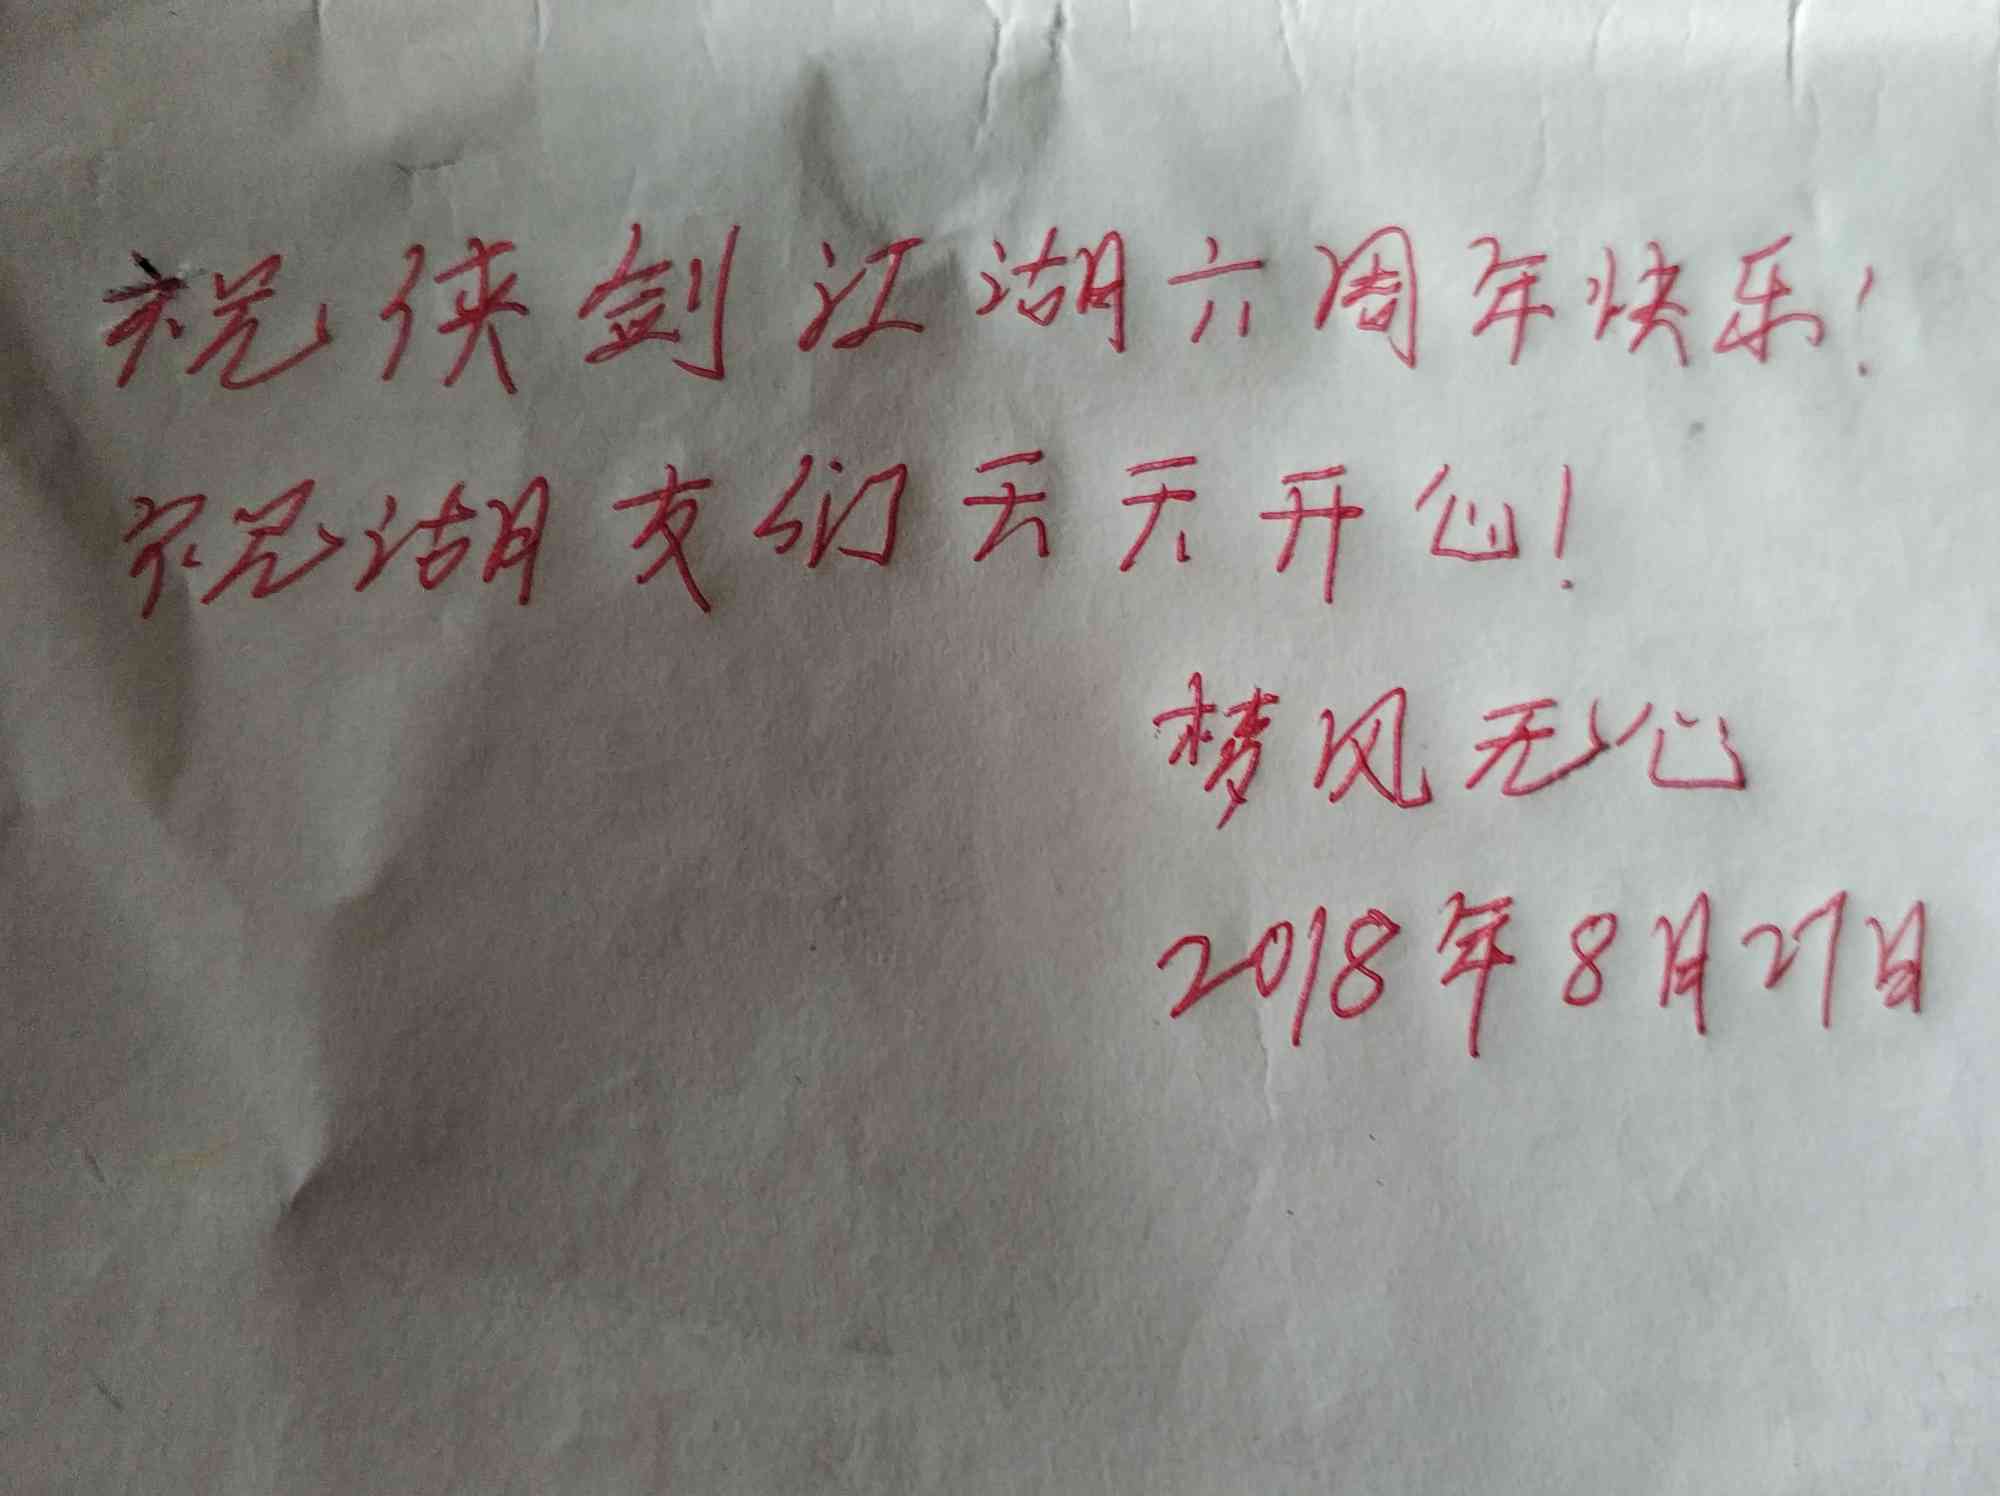 祝侠剑江湖六周年快乐!
祝湖友们天天开心!
梦风无心
2018年8月27日